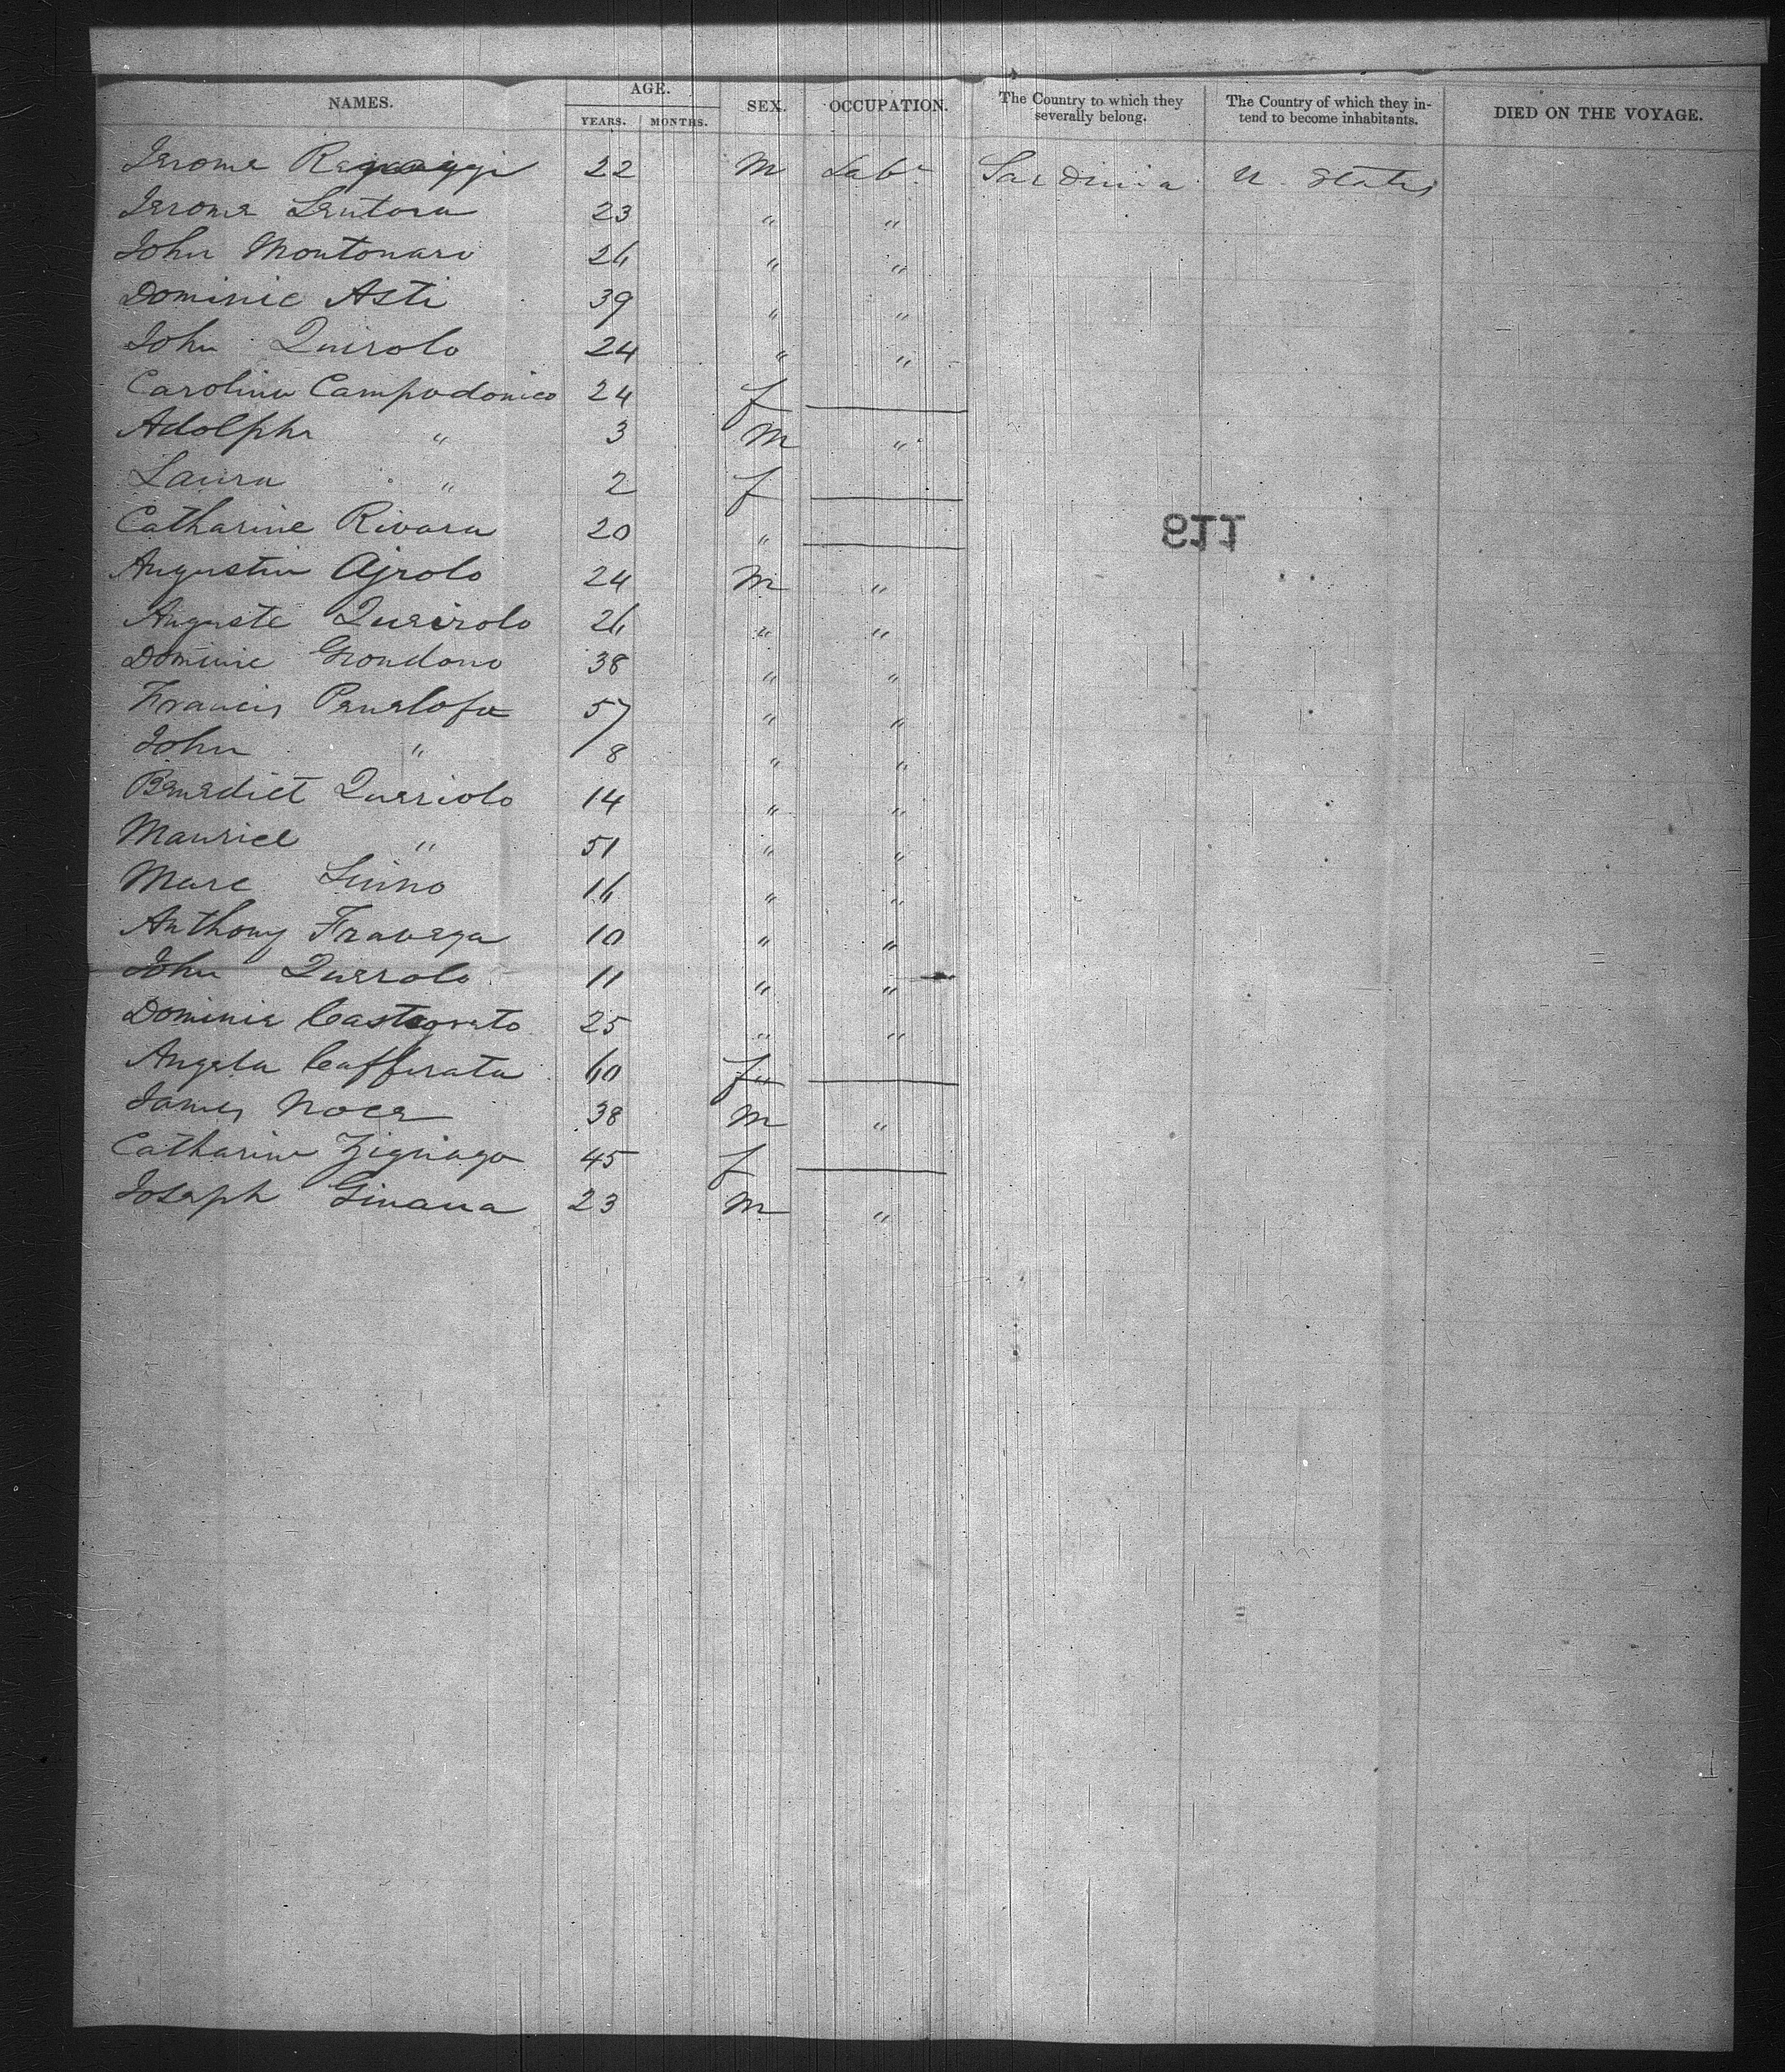 NAMES. AGE. SEX. OCCUPATION. The Country to which they severally belong. The Country of which they in-tend to become inhabitants. DIED ON THE VOYAGE.
YEARS. MONTHS.
Jerome 22 M Labr Sardinia U. States
Jerome Lentora 23 " "
John Montonari 26 " "
Dominic Asti 39 " "
John Quirolo 24 " "
Carolina Campodonico 24 f
Adolphe " 3 M "
Laura " 2 f
Catharine Rivara 20 "
Augustin Ajrolo 24 M "
Auguste Queirolo 26 " "
Dominic Grondona 38 " "
Francis 57 " "
John " 8 " "
Benedict Queriolo 14 " "
Maurice " 51 " "
Marc 16 " "
Anthony Fravega 10 " "
John Querolo 11 " "
Dominic 25 " "
Angela Cafferata 60 f
James Noce 38 M "
Catharine Zignago 45 f
Joseph 23 M "